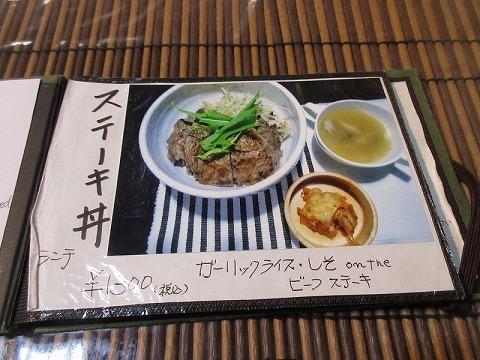 ステーキ丼
ランチ
¥1000(税込)
ガーリックライス・しそ on the
ビーフ ステーキ